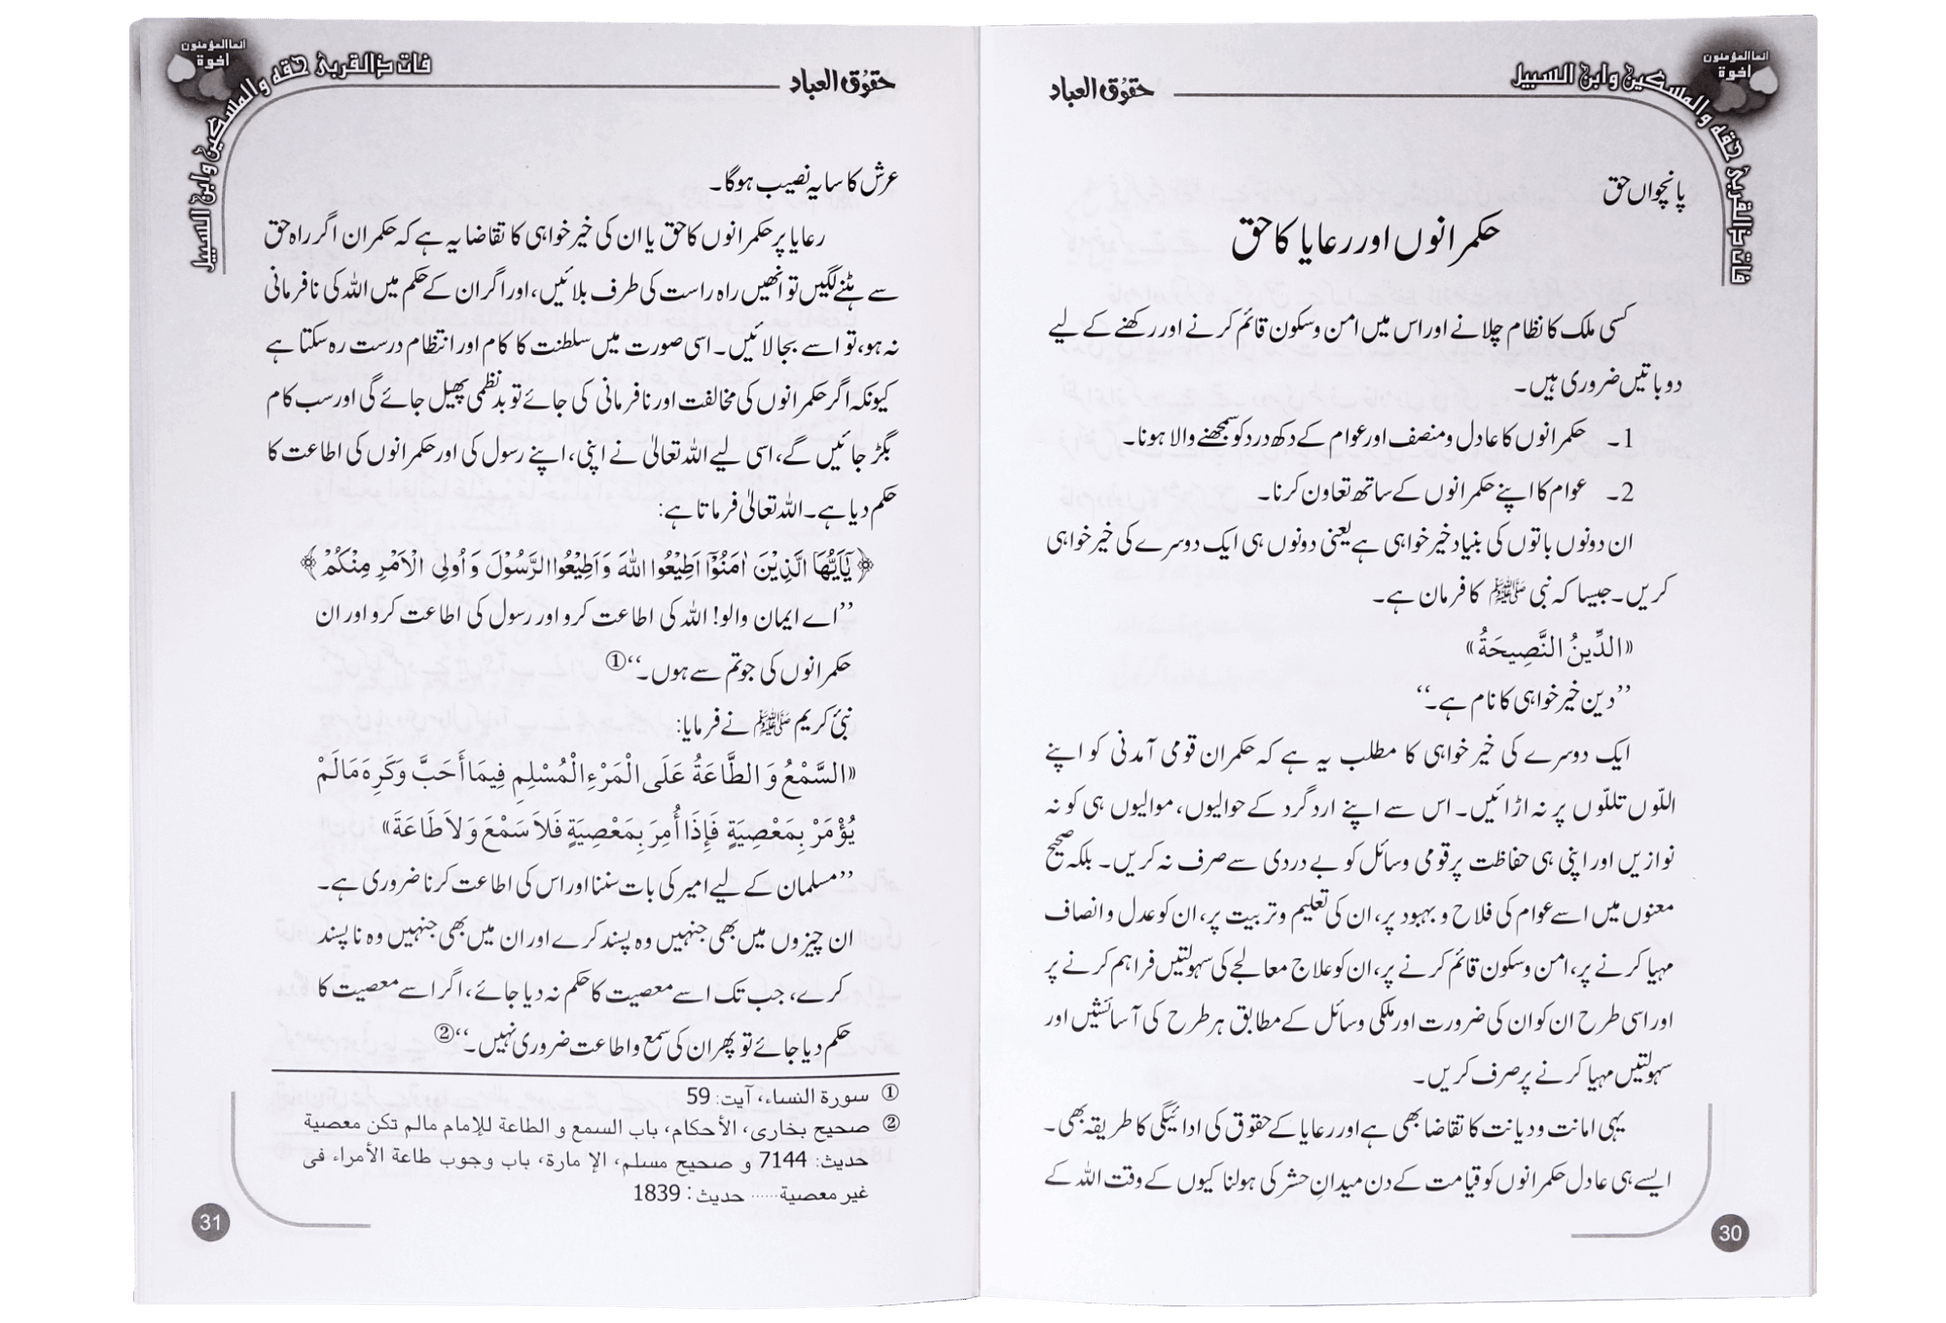 انما المؤمنون
اخوة
فات ذالقربىٰ حقه والمسكين وابن السبيل
حقوق العباد
پانچواں حق
حکمرانوں اور رعایا کا حق
کسی ملک کا نظام چلانے اور اس میں امن و سکون قائم کرنے اور رکھنے کے لیے
دو باتیں ضروری ہیں۔
1۔ حکمرانوں کا عادل و منصف اور عوام کے دکھ درد کو سمجھنے والا ہونا۔
2۔ عوام کا اپنے حکمرانوں کے ساتھ تعاون کرنا۔
ان دونوں باتوں کی بنیاد خیر خواہی ہے یعنی دونوں ہی ایک دوسرے کی خیر خواہی
کریں۔ جیسا کہ نبی ﷺ کا فرمان ہے۔
«الدِّينُ النَّصِيحَةُ»
’’دین خیر خواہی کا نام ہے۔‘‘
ایک دوسرے کی خیر خواہی کا مطلب یہ ہے کہ حکمران قومی آمدنی کو اپنے
اللّوں تللّوں پر نہ اڑائیں۔ اس سے اپنے اردگرد کے حوالیوں، موالیوں ہی کو نہ
نوازیں اور اپنی ہی حفاظت پر قومی وسائل کو بے دردی سے صرف نہ کریں۔ بلکہ صحیح
معنوں میں اسے عوام کی فلاح و بہبود پر، ان کی تعلیم و تربیت پر، ان کو عدل و انصاف
مہیا کرنے پر، امن و سکون قائم کرنے پر، ان کو علاج معالجے کی سہولتیں فراہم کرنے پر
اور اسی طرح ان کو ان کی ضرورت اور ملکی وسائل کے مطابق ہر طرح کی آسائشیں اور
سہولتیں مہیا کرنے پر صرف کریں۔
یہی امانت و دیانت کا تقاضا بھی ہے اور رعایا کے حقوق کی ادائیگی کا طریقہ بھی۔
ایسے ہی عادل حکمرانوں کو قیامت کے دن میدانِ حشر کی ہولنا کیوں کے وقت اللہ کے
30
انما المؤمنون
اخوة
فات ذالقربىٰ حقه والمسكين وابن السبيل
حقوق العباد
عرش کا سایہ نصیب ہوگا۔
رعایا پر حکمرانوں کا حق یا ان کی خیر خواہی کا تقاضا یہ ہے کہ حکمران اگر راہ حق
سے ہٹنے لگیں تو انھیں راہ راست کی طرف بلائیں، اور اگر ان کے حکم میں اللہ کی نافرمانی
نہ ہو، تو اسے بجا لائیں۔ اسی صورت میں سلطنت کا کام اور انتظام درست رہ سکتا ہے
کیونکہ اگر حکمرانوں کی مخالفت اور نافرمانی کی جائے تو بدنظمی پھیل جائے گی اور سب کام
بگڑ جائیں گے، اسی لیے اللہ تعالیٰ نے اپنی، اپنے رسول کی اور حکمرانوں کی اطاعت کا
حکم دیا ہے۔ اللہ تعالیٰ فرماتا ہے:
﴿يٰۤاَيُّهَا الَّذِيْنَ اٰمَنُوْۤا اَطِيْعُوا اللّٰهَ وَ اَطِيْعُوا الرَّسُوْلَ وَ اُولِى الْاَمْرِ مِنْكُمْ﴾
’’اے ایمان والو! اللہ کی اطاعت کرو اور رسول کی اطاعت کرو اور ان
حکمرانوں کی جو تم سے ہوں۔‘‘①
نبیٔ کریم ﷺ نے فرمایا:
«السَّمْعُ وَ الطَّاعَةُ عَلَى الْمَرْءِ الْمُسْلِمِ فِيمَا أَحَبَّ وَ كَرِهَ مَا لَمْ
يُؤْمَرْ بِمَعْصِيَةٍ فَإِذَا أُمِرَ بِمَعْصِيَةٍ فَلاَ سَمْعَ وَ لاَ طَاعَةَ»
’’مسلمان کے لیے امیر کی بات سننا اور اس کی اطاعت کرنا ضروری ہے۔
ان چیزوں میں بھی جنہیں وہ پسند کرے اور ان میں بھی جنہیں وہ ناپسند
کرے، جب تک اسے معصیت کا حکم نہ دیا جائے، اگر اسے معصیت کا
حکم دیا جائے تو پھر ان کی سمع و اطاعت ضروری نہیں۔‘‘②
① سورة النساء، آيت: 59
② صحيح بخارى، الأحكام، باب السمع و الطاعة للإمام مالم تكن معصية
حديث: 7144 و صحيح مسلم، الإ مارة، باب وجوب طاعة الأمراء فى
غير معصية...... حديث: 1839
31